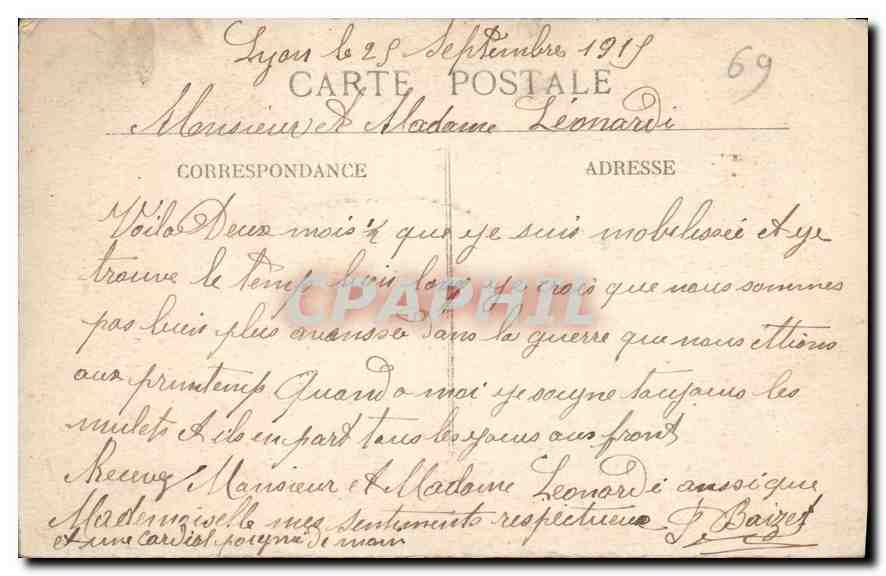 Lyon le 25 Septembre 1915
69
CARTE POSTALE
Monsieur et Madame Léonardi
CORRESPONDANCE
ADRESSE
Voila Deux mois ½ que ye suis mobelissée et ye
trouve le temp bien long ye crois que nous sommes
pas bien plus avanssée dans la guerre que nous ettions
aux printemp Quand a moi ye soigne toujours les
mulets et ils en part tous les yours aux front
Recevez Monsieur et Madame Leonardi aussi que
Mademoiselle mes sentiments respectueux F. Baizet
et une cordial poigné de main
CPAPHIL